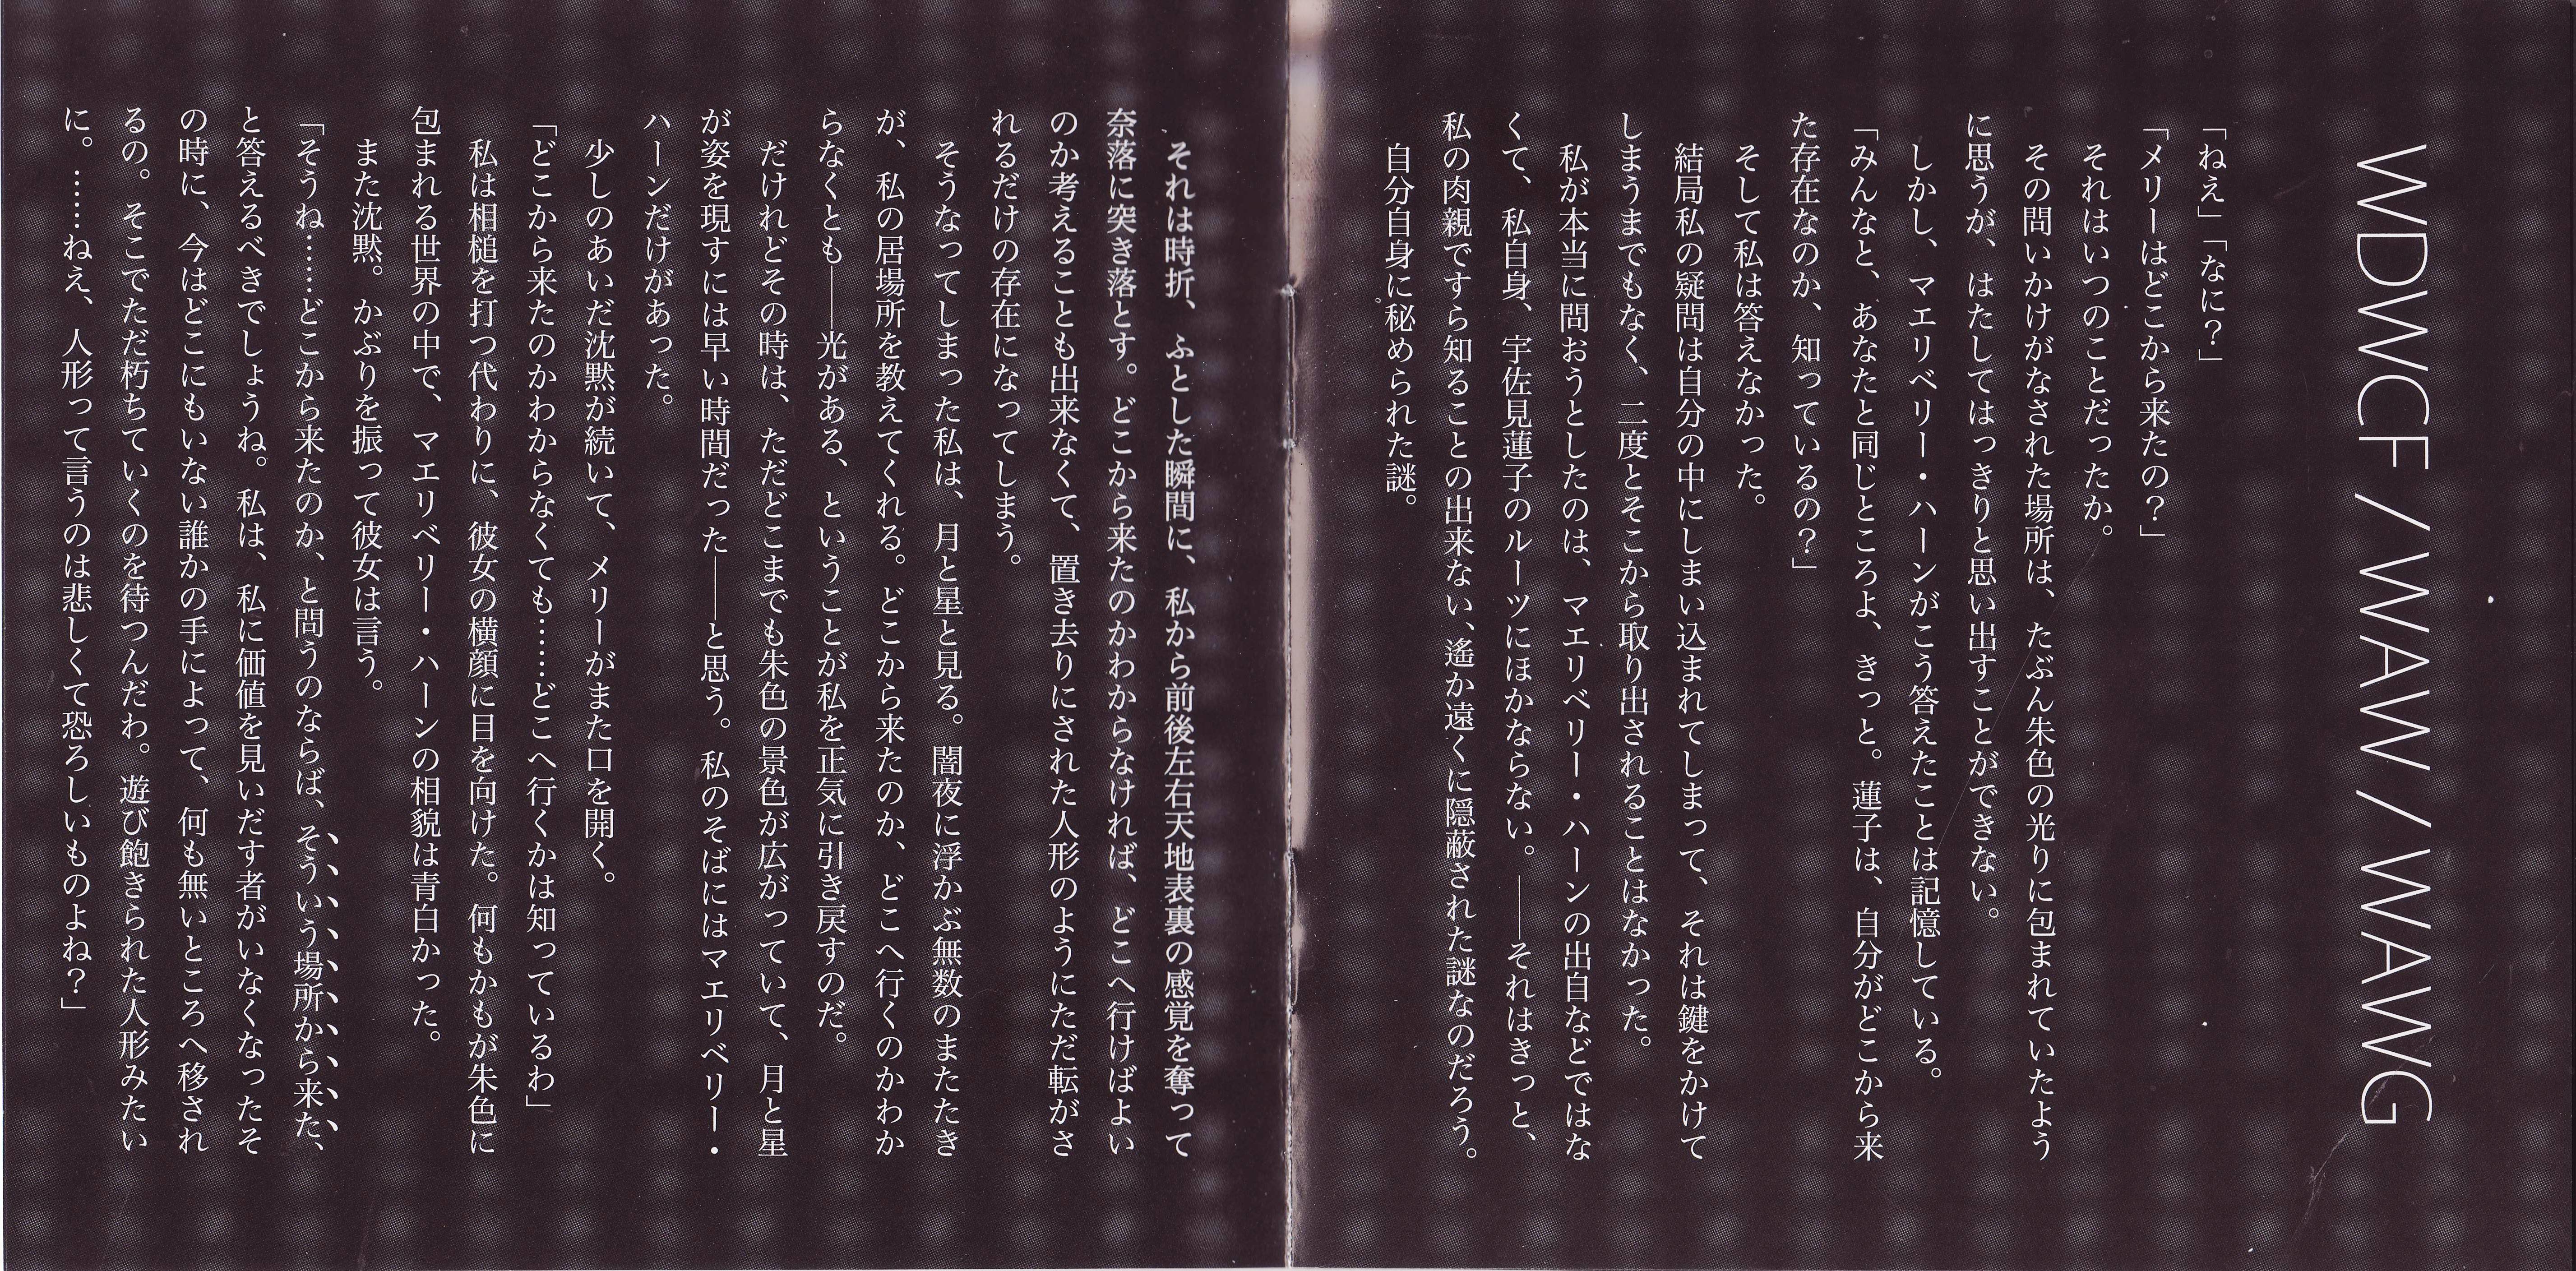 WDWCF / WAW / WAWG
「ねえ」「なに？」
「メリーはどこから来たの？」
それはいつのことだったか。
その問いかけがなされた場所は、たぶん朱色の光りに包まれていたよう
に思うが、はたしてはっきりと思い出すことができない。
しかし、マエリベリー・ハーンがこう答えたことは記憶している。
「みんなと、あなたと同じところよ、きっと。蓮子は、自分がどこから来
た存在なのか、知っているの？」
そして私は答えなかった。
結局私の疑問は自分の中にしまい込まれてしまって、それは鍵をかけて
しまうまでもなく、二度とそこから取り出されることはなかった。
私が本当に問おうとしたのは、マエリベリー・ハーンの出自などではな
くて、私自身、宇佐見蓮子のルーツにほかならない。――それはきっと、
私の肉親ですら知ることの出来ない、遙か遠くに隠蔽された謎なのだろう。
自分自身に秘められた謎。
それは時折、ふとした瞬間に、私から前後左右天地表裏の感覚を奪って
奈落に突き落とす。どこから来たのかわからなければ、どこへ行けばよい
のか考えることも出来なくて、置き去りにされた人形のようにただ転がさ
れるだけの存在になってしまう。
そうなってしまった私は、月と星と見る。闇夜に浮かぶ無数のまたたき
が、私の居場所を教えてくれる。どこから来たのか、どこへ行くのかわか
らなくとも――光がある、ということが私を正気に引き戻すのだ。
だけれどその時は、ただどこまでも朱色の景色が広がっていて、月と星
が姿を現すには早い時間だった――と思う。私のそばにはマエリベリー・
ハーンだけがあった。
少しのあいだ沈黙が続いて、メリーがまた口を開く。
「どこから来たのかわからなくても……どこへ行くかは知っているわ」
私は相槌を打つ代わりに、彼女の横顔に目を向けた。何もかもが朱色に
包まれる世界の中で、マエリベリー・ハーンの相貌は青白かった。
また沈黙。かぶりを振って彼女は言う。
「そうね……どこから来たのか、と問うのならば、そういう場所から来た、
と答えるべきでしょうね。私は、私に価値を見いだす者がいなくなったそ
の時に、今はどこにもいない誰かの手によって、何も無いところへ移され
るの。そこでただ朽ちていくのを待つんだわ。遊び飽きられた人形みたい
に。……ねえ、人形って言うのは悲しくて恐ろしいものよね？」